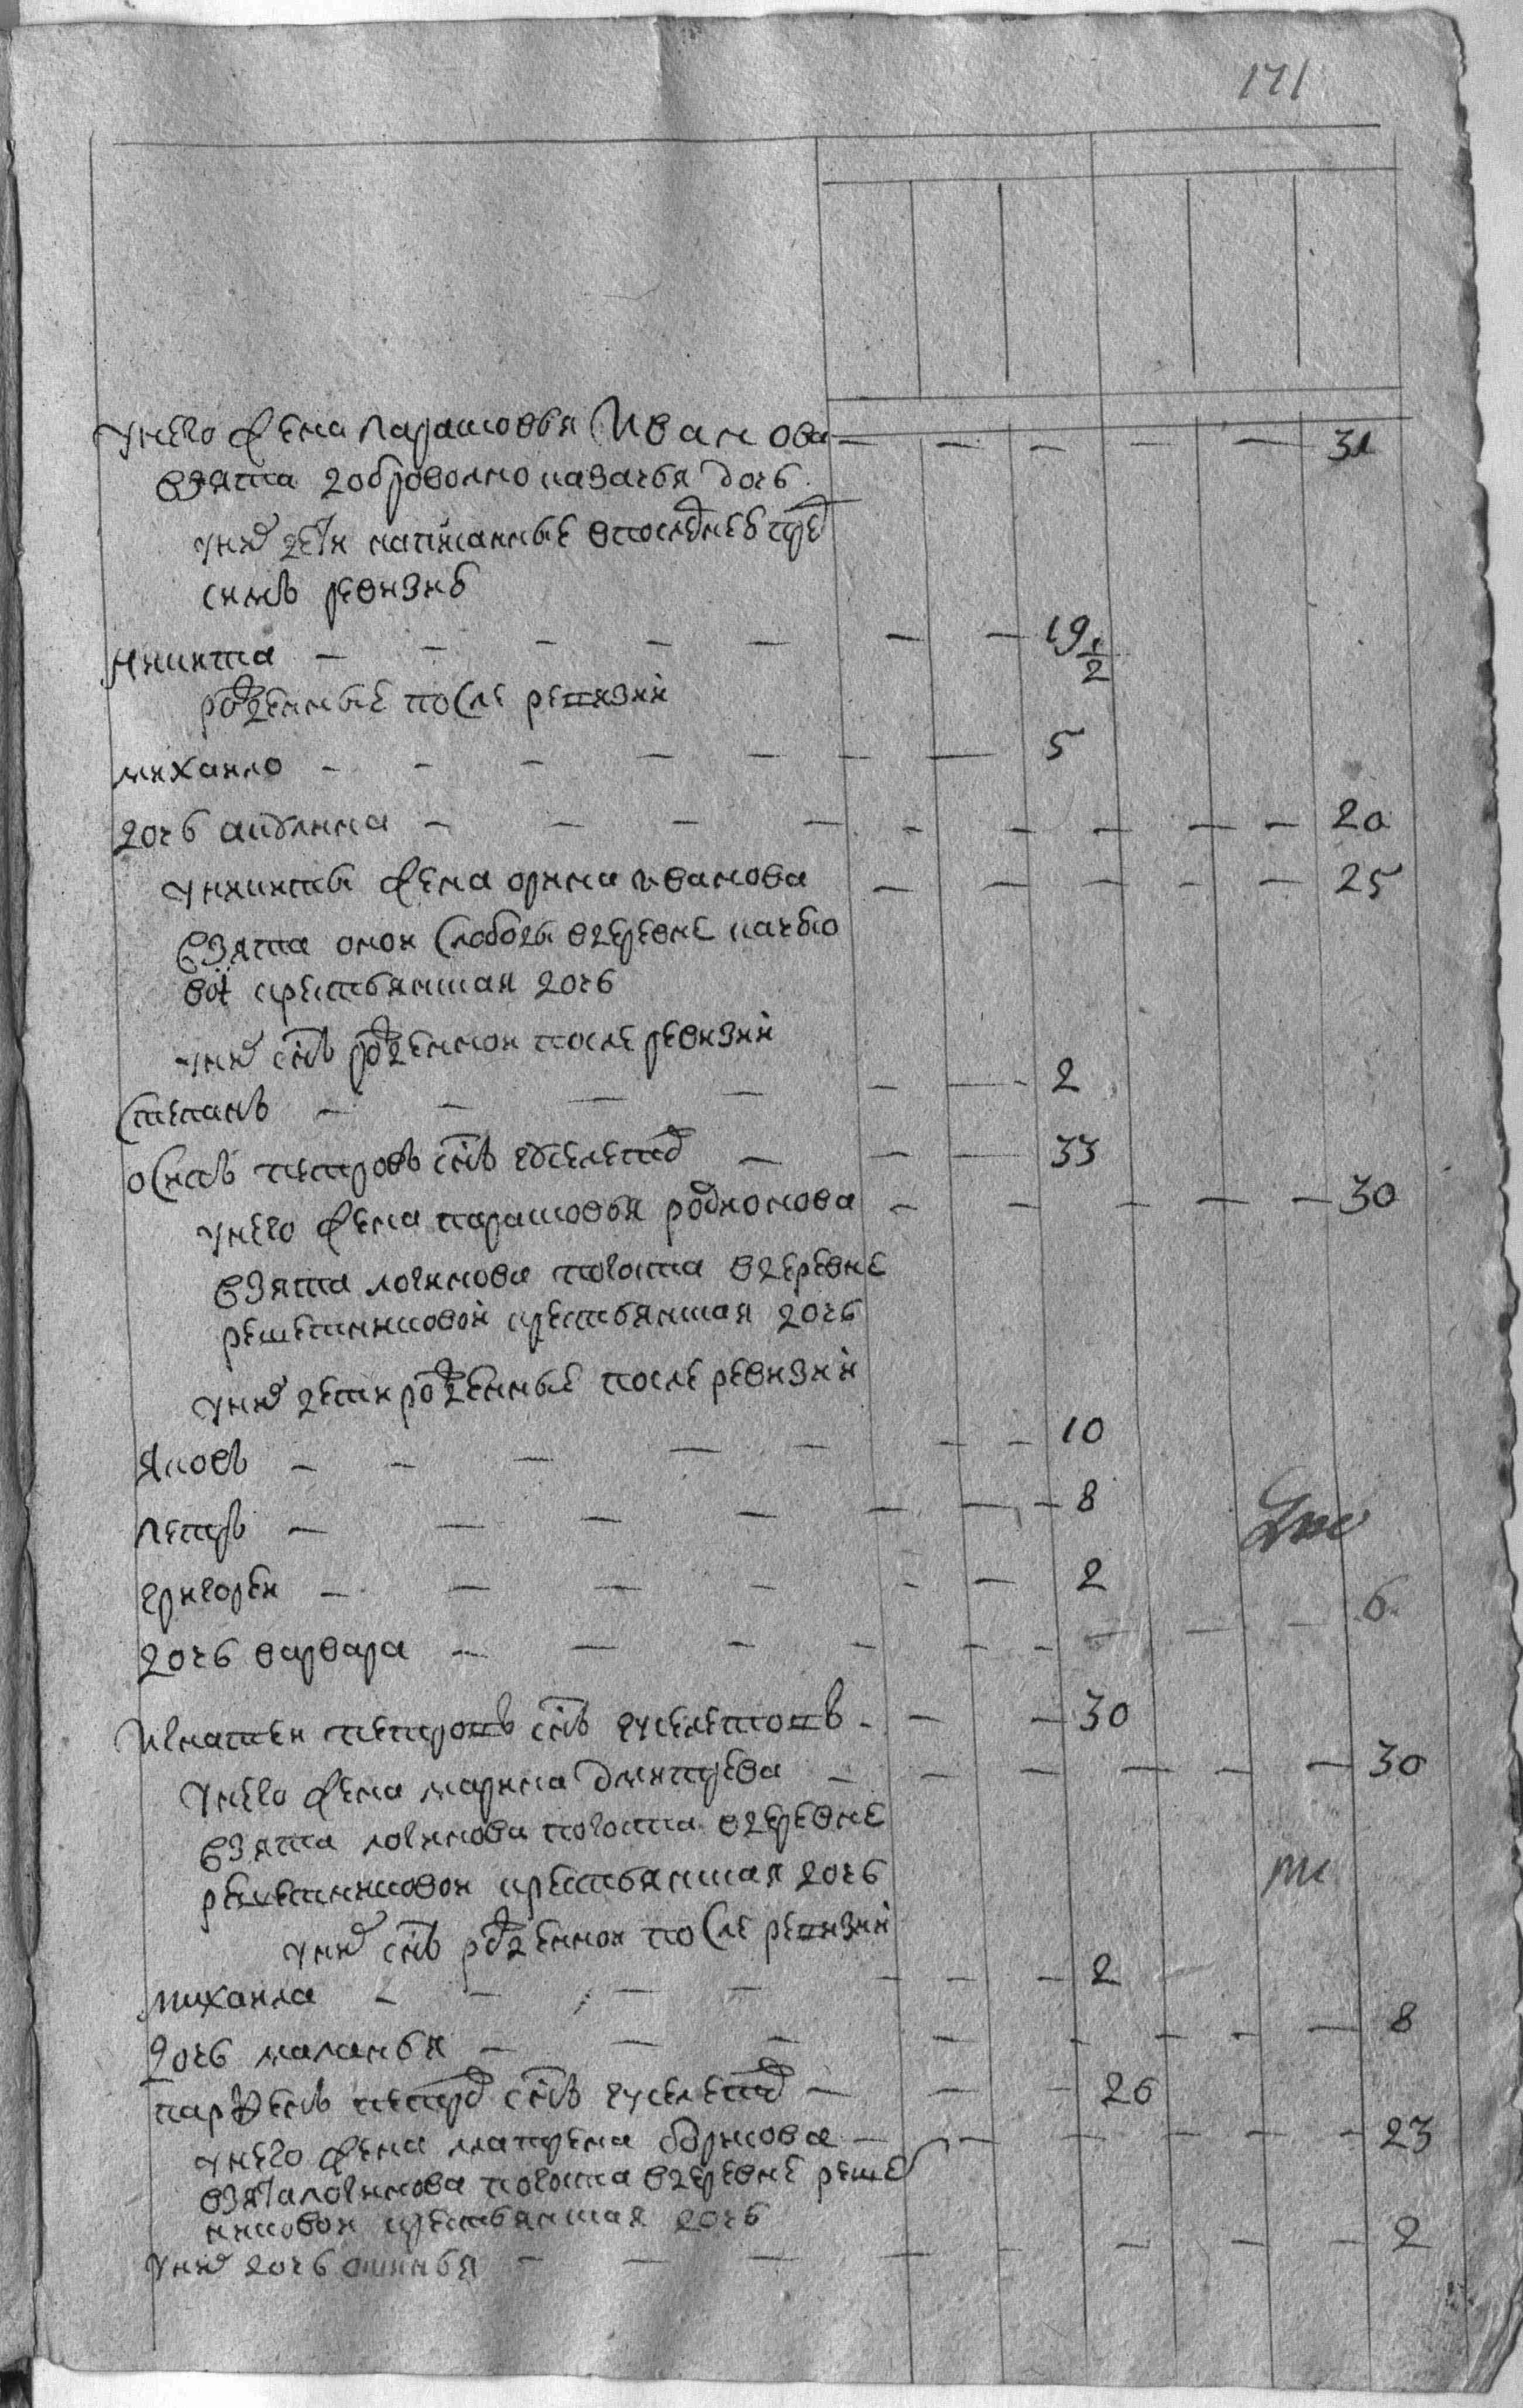 171
унего жена парасковья Иванова — — — — — 31
взята доброволно казачья дочь
уних дети написанные впоследнеи пред
симъ ревизиі
никита — — — — — — — 19 1/2
рожденные после ревизиі
михаило — — — — — — — 5
дочь акулина — — — — — — — — — 20
уникиты жена орина иванова — — — — — 25
взята оной слободы вдеревне
вой крестьянская дочь
уних снъ рожденной после ревизиі
степанъ — — — — — — 2
осипъ петровъ снъ — — — 33
унего жена парасковья родионова — — — — — 30
взята логинова погоста вдеревне
решетниковоі крестьянская дочь
уних дети рожденные после ревизиі
яковъ — — — — — — — 10
петръ — — — — — — — 8
григореи — — — — — — 2
дочь варвара — — — — — — — — — 6
Игнатеи петровъ снъ — — — 30
унего жена марина дмитрева — — — — — — 30
взята логинова погоста вдеревне
решетниковои крестьянская дочь
уних снъ рожденной после ревизиі
михаила — — — — — — — 2
дочь маланья — — — — — — — — 8
парфенъ петров снъ — — — 26
унего жена матрена борисова — — — — — — 23
взята логинова погоста вдеревне реше
никовои крестьянская дочь
уних дочь — — — — — — — — 2